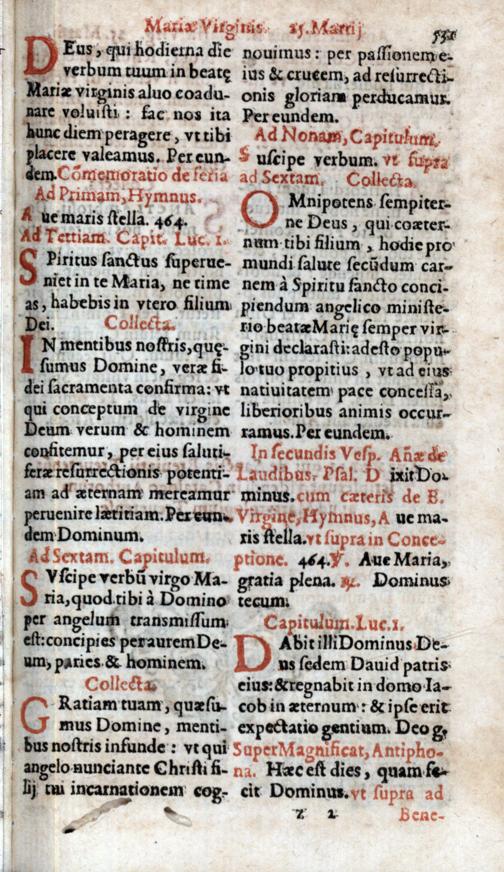 Mariæ Virginis. 25. Martij 531
DEus, qui hodierna die
verbum tuum in beatę
Mariæ virginis aluo coadu-
nare voluisti : fac nos ita
hunc diem peragere, vt tibi
placere valeamus. Per eun-
dem. Cōmemoratio de feria
Ad Primam, Hymnus.
A ue maris stella. 464.
Ad Tertiam. Capit. Luc. 1.
SPiritus sanctus superue-
niet in te Maria, ne time
as, habebis in vtero filium
Dei. Collecta.
IN mentibus nostris, quę-
sumus Domine, veræ fi-
dei sacramenta confirma: vt
qui conceptum de virgine
Deum verum & hominem
confitemur, per eius saluti-
feræ resurrectionis potenti-
am ad æternam mereamur
peruenire lætitiam. Per eun-
dem Dominum.
Ad Sextam. Capitulum.
SVscipe verbū virgo Ma-
ria, quod tibi à Domino
per angelum transmissum
est: concipies per aurem De-
um, paries & hominem.
Collecta.
GRatiam tuam, quæsu-
mus Domine, menti-
bus nostris infunde : vt qui
angelo nunciante Christi fi-
lij tui incarnationem cog-
nouimus : per passionem e-
ius & crucem, ad resurrecti-
onis gloriam perducamur.
Per eundem.
Ad Nonam, Capitulum.
S uscipe verbum. vt supra
ad Sextam. Collecta.
OMnipotens sempiter-
ne Deus, qui coæter-
num tibi filium, hodie pro
mundi salute secūdum car-
nem à Spiritu sancto conci-
piendum angelico ministe-
rio beatæ Marię semper vir-
gini declarasti: adesto popu-
lo tuo propitius, vt ad eius
natiuitatem pace concessa,
liberioribus animis occur-
ramus. Per eundem.
In secundis Vesp. Añæ de
Laudibus. Psal. D ixit Do-
minus. cum cæteris de B.
Virgine, Hymnus, A ue ma-
ris stella. vt supra in Conce-
ptione. 464. ℣. Aue Maria,
gratia plena. ℟. Dominus
tecum.
Capitulum. Luc. 1.
DAbit illi Dominus De-
us sedem Dauid patris
eius: & regnabit in domo Ia-
cob in æternum : & ipse erit
expectatio gentium. Deo g,
Super Magnificat, Antipho-
na. Hæc est dies, quam fe-
cit Dominus. vt supra ad
Z 2 Bene-